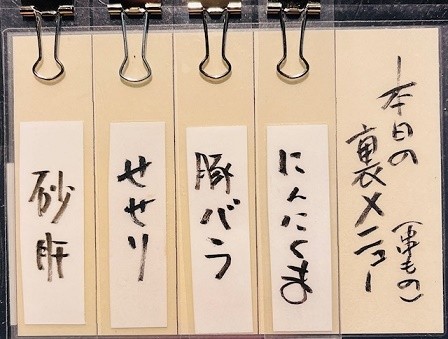 本日の
裏メニュー
(串もの)
にんにくま
豚バラ
せせり
砂肝